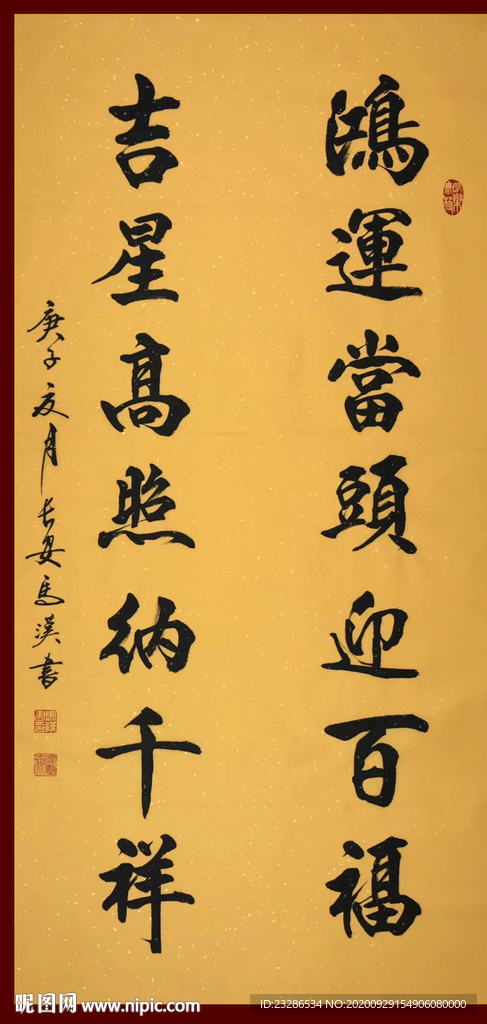 鴻運當頭迎百福
吉星高照納千祥
庚子夏月長安馬漢書
昵图网 www.nipic.com
ID:23286534 NO:20200929154906080000